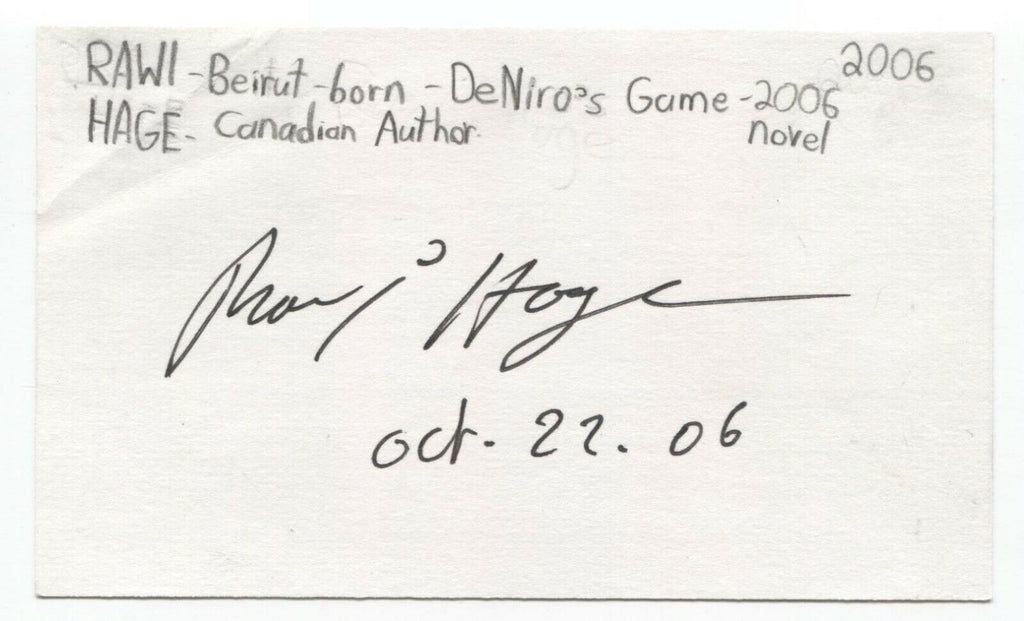 2006
RAWI - Beirut-born - DeNiro's Game - 2006
HAGE - Canadian Author. novel
Rawi Hage
oct. 22. 06